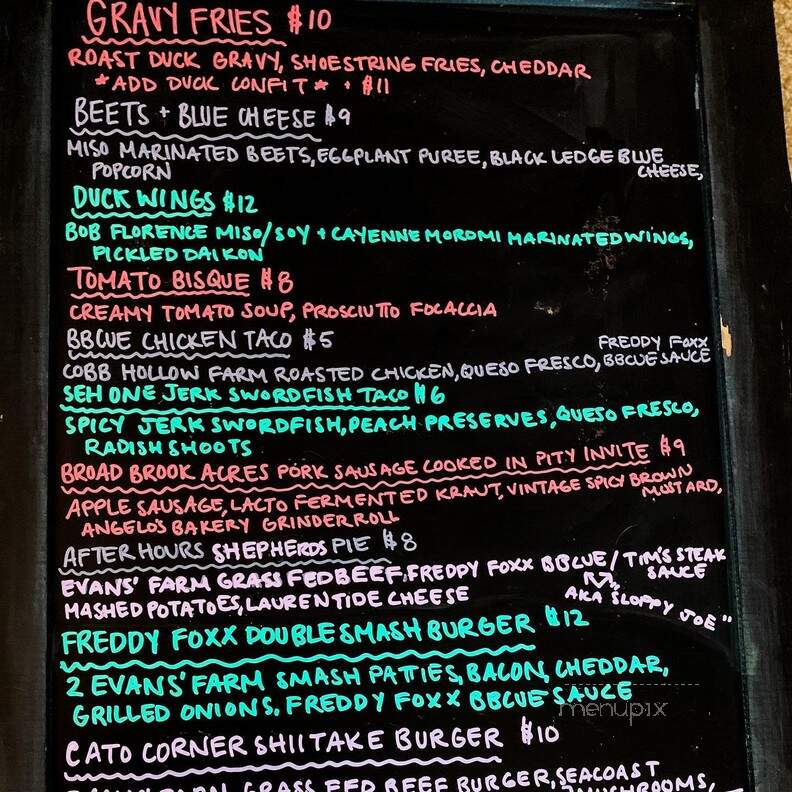 GRAVY FRIES $10
ROAST DUCK GRAVY, SHOESTRING FRIES, CHEDDAR
*ADD DUCK CONFIT* + $11
BEETS + BLUE CHEESE $9
MISO MARINATED BEETS, EGGPLANT PUREE, BLACK LEDGE BLUE
CHEESE,
POPCORN
DUCK WINGS $12
BOB FLORENCE MISO/SOY + CAYENNE MOROMI MARINATED WINGS,
PICKLED DAIKON
TOMATO BISQUE $8
CREAMY TOMATO SOUP, PROSCIUTTO FOCACCIA
BBCUE CHICKEN TACO $5
COBB HOLLOW FARM ROASTED CHICKEN, QUESO FRESCO, FREDDY FOXX
BBCUE SAUCE
SEH ONE JERK SWORDFISH TACO $6
SPICY JERK SWORDFISH, PEACH PRESERVES, QUESO FRESCO,
RADISH SHOOTS
BROAD BROOK ACRES PORK SAUSAGE COOKED IN PITY INVITE $9
APPLE SAUSAGE, LACTO FERMENTED KRAUT, VINTAGE SPICY BROWN
MUSTARD,
ANGELO'S BAKERY GRINDER ROLL
AFTER HOURS SHEPHERDS PIE $8
EVANS' FARM GRASS FED BEEF, FREDDY FOXX BBCUE / TIM'S STEAK
SAUCE
MASHED POTATOES, LAURENTIDE CHEESE
AKA SLOPPY JOE"
FREDDY FOXX DOUBLE SMASH BURGER $12
2 EVANS' FARM SMASH PATTIES, BACON, CHEDDAR,
GRILLED ONIONS, FREDDY FOXX BBCUE SAUCE
menupix
CATO CORNER SHIITAKE BURGER $10
FARM GRASS FED BEEF BURGER, SEACOAST
MUSHROOMS,